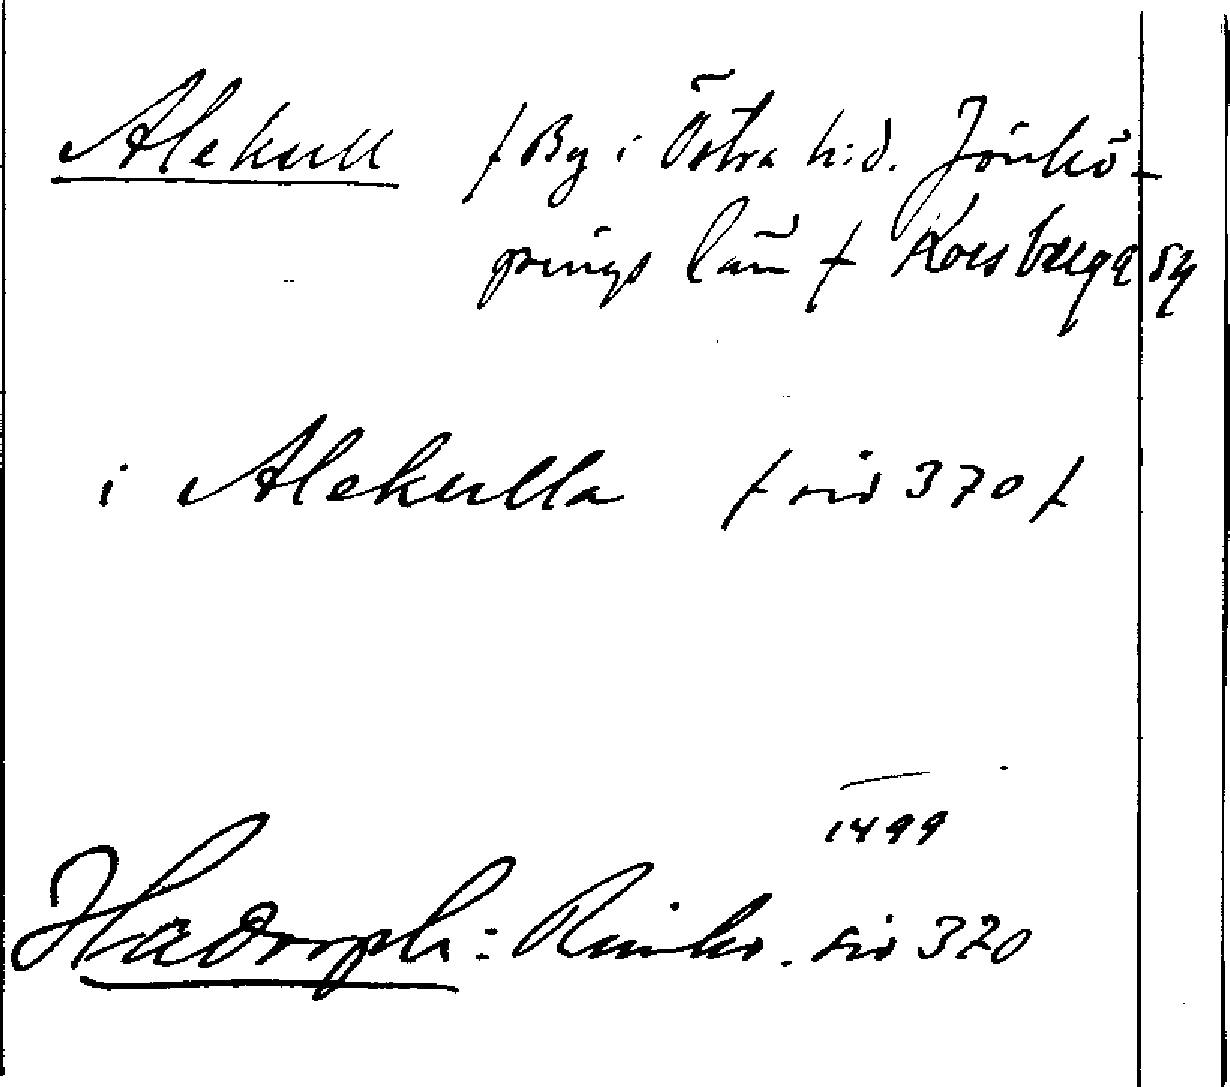 Alekull / By i Östra h:d. Jönkö-
pings län / Korsberga sn
i Alekulla / sid 370 /
1499
Hadorph: Rimkr. sid 370